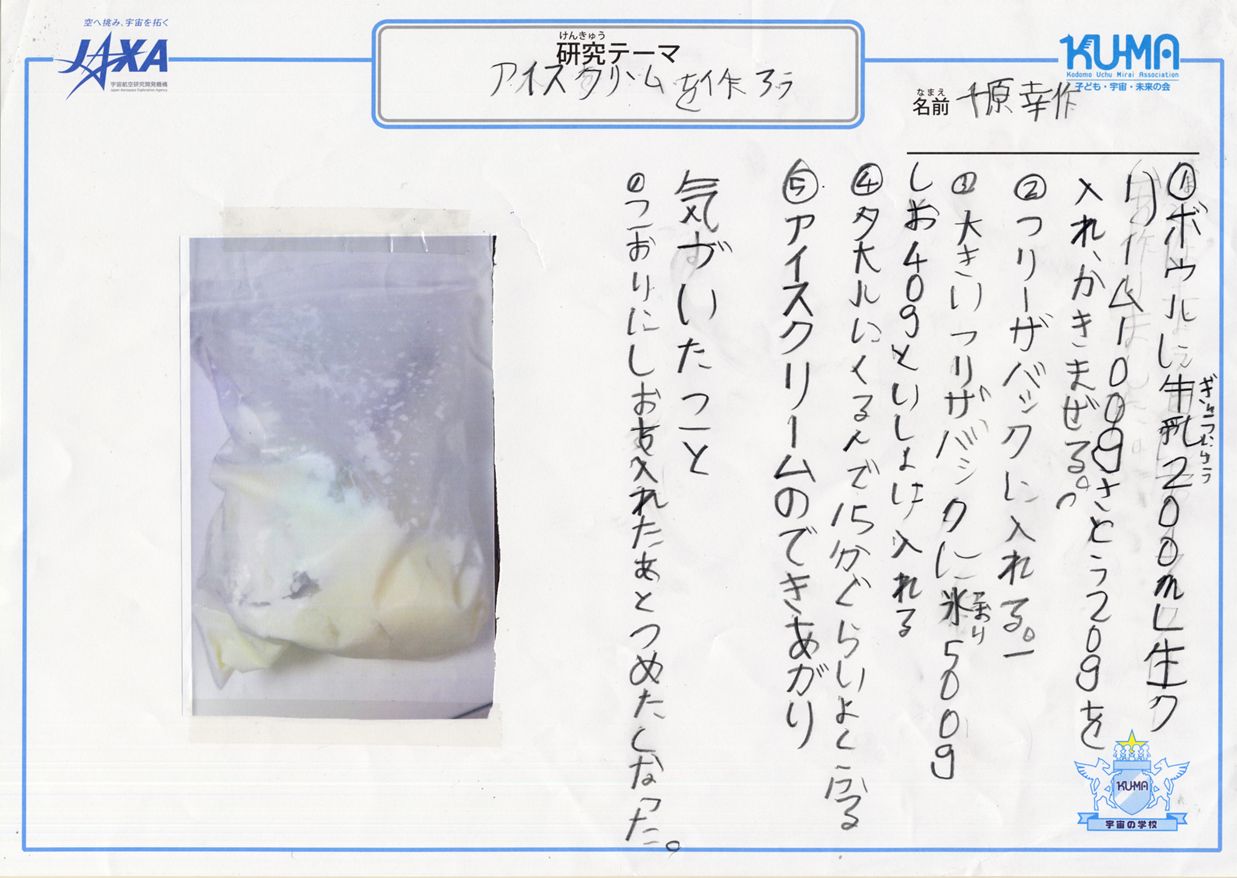 空へ挑み、宇宙を拓く
JAXA
宇宙航空研究開発機構
Japan Aerospace Exploration Agency
けんきゅう
研究テーマ
アイスクリームを作ろう
KU-MA
Kodomo Uchu Mirai Association
子ども・宇宙・未来の会
なまえ
名前 原幸作
①ボウルに牛乳200mL生ク
リーム100gさとう20gを
入れ、かきまぜる。
②フリーザバックに入れる。
③大きいフリザバックに氷500g
こおり
しお40gといしょに入れる
④タオルにくるんで15分ぐらいよくふる
⑤アイスクリームのできあがり
気がいたこと
こおりにしおを入れたあとつめたくなった。
KU-MA
宇宙の学校